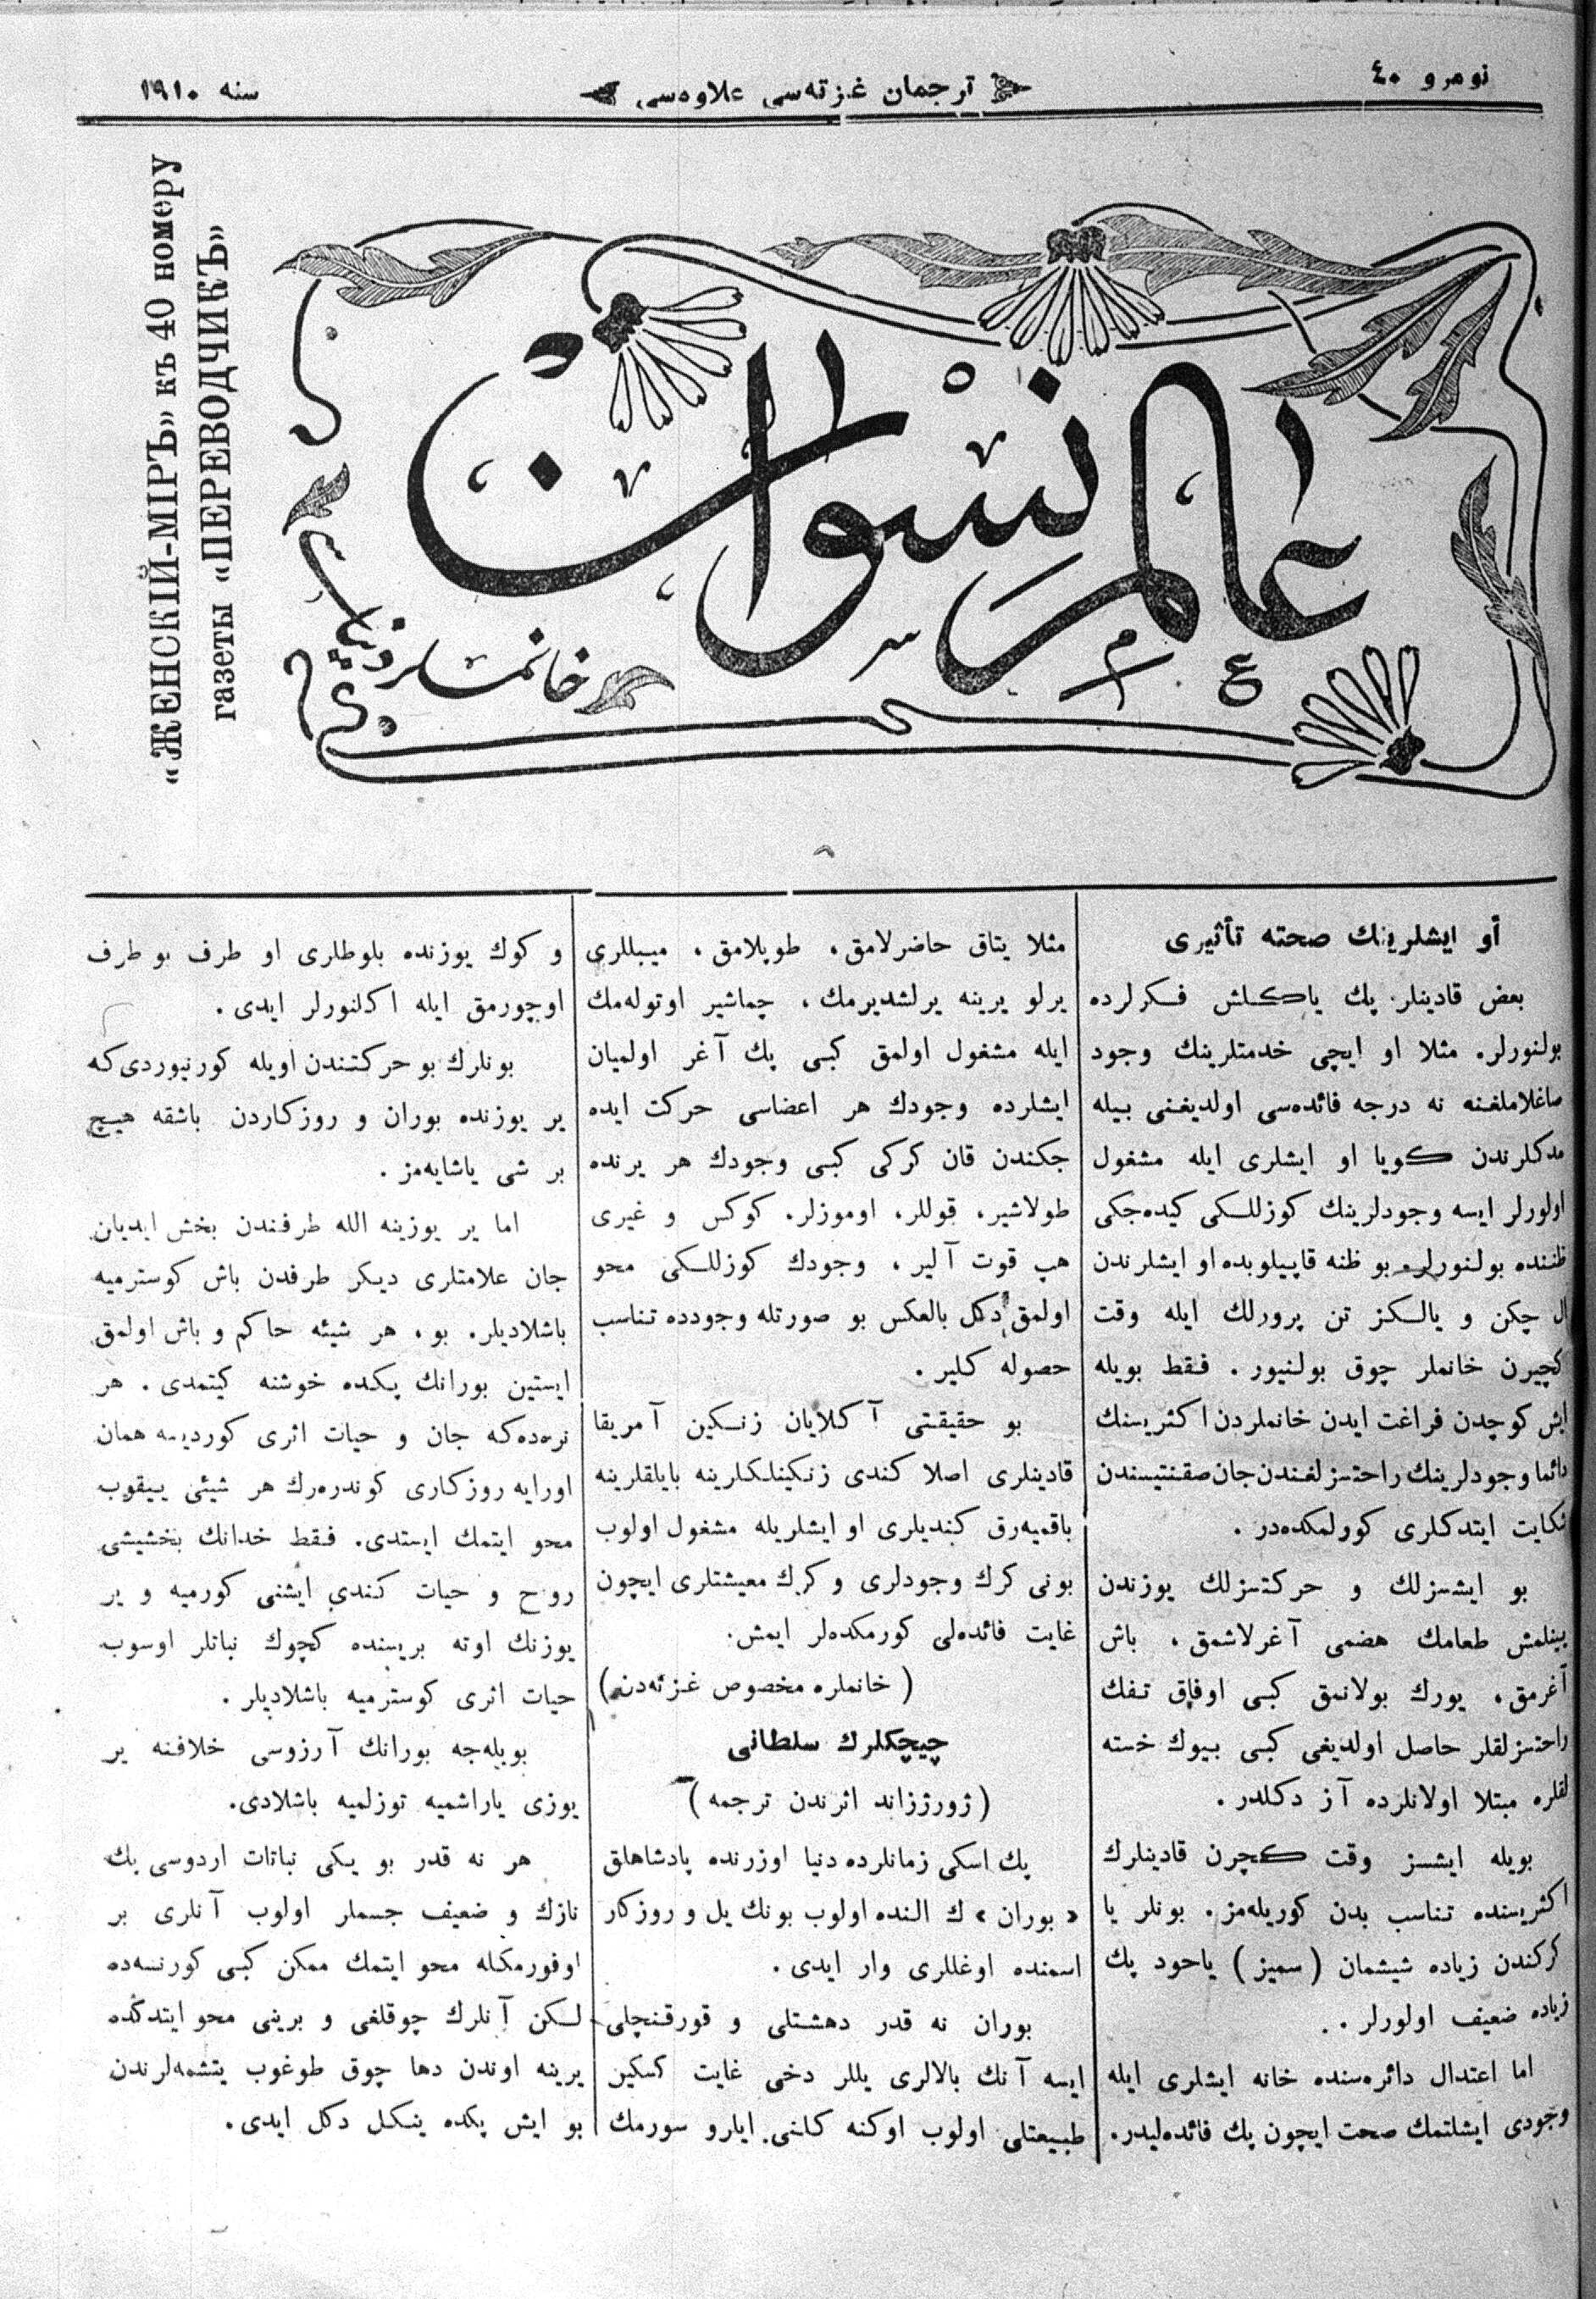 نومرو ٤٠
ترجمان غزته‌سی علاوه‌سی
سنه ١٩١٠
«ЖЕНСКІЙ-МІРЪ» къ 40 номеру
газеты «ПЕРЕВОДЧИКЪ»
عالم نسوان
خانملر دنیاسی
أو ایشلرینك صحته تأثیری
بعض قادینلر پك یاڭلش فکرلرده
بولنورلر. مثلا او ایچی خدمتلرینك وجود
صاغلاملغنه نه درجه فائده‌سی اولدیغنی بیله
مدکلرندن کویا او ایشلری ایله مشغول
اولورلر ایسه وجودلرینك کوزللکی کیده‌جکی
ظننده بولنورلر. بو ظنه قاپیلوبده او ایشلرندن
ال چکن و یالکز تن پرورلك ایله وقت
کچیرن خانملر چوق بولنیور. فقط بویله
ایش کوچدن فراغت ایدن خانملردن اکثریسنك
دائما وجودلرینك راحتسزلغندن جان صقنتیسندن
شکایت ایتدکلری کورلمکده‌در.
بو ایشسزلك و حرکتسزلك یوزندن
یینلمش طعامك هضمی آغرلاشمق، باش
آغرمق، یورك بولانمق کبی اوفاق تفك
راحتسزلقلر حاصل اولدیغی کبی بیوك خسته
لقلره مبتلا اولانلرده آز دکلدر.
بویله ایشسز وقت کچرن قادینلرك
اکثریسنده تناسب بدن کوریله‌مز. بونلر یا
کرکندن زیاده شیشمان (سمیز) یاحود پك
زیاده ضعیف اولورلر..
اما اعتدال دائره‌سنده خانه ایشلری ایله
وجودی ایشلتمك صحت ایچون پك فائده‌لیدر.
مثلا یتاق حاضرلامق، طوپلامق، میبللری
یرلو یرینه یرلشدیرمك، چماشیر اوتوله‌مك
ایله مشغول اولمق کبی پك آغر اولمیان
ایشلرده وجودك هر اعضاسی حرکت ایده
جکندن قان کرکی کبی وجودك هر یرنده
طولاشیر، قوللر، اوموزلر. کوکس و غیری
هپ قوت آلیر، وجودك کوزللکی محو
اولمق دکل بالعکس بو صورتله وجودده تناسب
حصوله کلیر.
بو حقیقتی آڭلایان زنکین آمریقا
قادینلری اصلا کندی زنکینلکلرینه بایلقلرینه
باقمیه‌رق کندیلری او ایشلریله مشغول اولوب
بونی کرك وجودلری و کرك معیشتلری ایچون
غایت فائده‌لی کورمکده‌لر ایمش.
(خانملره مخصوص غزته‌دن)
چیچکلرك سلطانی
(ژورژزاند اثرندن ترجمه)
پك اسکی زمانلرده دنیا اوزرنده پادشاهلق
«بوران» ك النده اولوب بونك یل و روزکار
اسمنده اوغللری وار ایدی.
بوران نه قدر دهشتلی و قورقنچلی
ایسه آنك بالالری یللر دخی غایت کسکین
طبیعتلی اولوب اوکنه کلنی ایارو سورمك
و کوك یوزنده بلوطلاری او طرف بو طرف
اوچورمق ایله اکلنورلر ایدی.
بونلرك بو حرکتندن اویله کورنیوردی‌که
یر یوزنده بوران و روزکاردن باشقه هیچ
بر شی یاشایه‌مز.
اما یر یوزینه الله طرفندن بخش ایدیلن
جان علامتلری دیکر طرفدن باش کوسترمیه
باشلادیلر. بو، هر شیئه حاکم و باش اولمق
ایستین بورانك پکده خوشنه کیتمدی. هر
نره‌ده‌که جان و حیات اثری کوردیسه همان
اورایه روزکاری کوندره‌رك هر شیئی ییقوب
محو ایتمك ایستدی. فقط خدانك بخشیشی
روح و حیات کندی ایشنی کورمیه و یر
یوزنك اوته بریسنده کچوك نباتلر اوسوب
حیات اثری کوسترمیه باشلادیلر.
بویله‌جه بورانك آرزوسی خلافنه یر
یوزی یاراشمیه توزلمیه باشلادی.
هر نه قدر بو یڭی نباتات اردوسی پك
نازك و ضعیف جسملر اولوب آنلری بر
اوفورمکله محو ایتمك ممکن کبی کورنسه‌ده
لکن آنلرك چوقلغی و برینی محو ایتدکده
یرینه اوندن دها چوق طوغوب یتشمه‌لرندن
بو ایش پکده ینکل دکل ایدی.